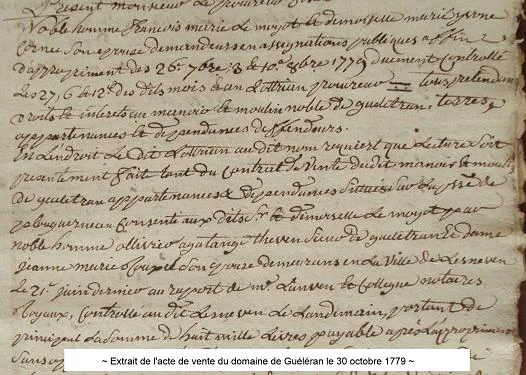 Présent monsieur le procureur
Noble homme francois marie Le moyot et demoiselle marie yvonne
Corne Son epouse demandeurs en assignations publiques affin
d'appropriment des 26e 7bre, 3 et 10e 8bre 1779 duement Controllé
Les 27, 6 et 12e des dits mois Lottrian procureur tous pretendans
Droits et interets au manoir et moulin noble de gueletran, terres,
appartenances et dependances deffendeurs.
En L'endroit Le Dit Lottrian audit nom requiert que Lecture Soit
presentement fait tant du Contrat de Vente dudit manoir et moulin
de gueletran appartenances & dependances Situés Sur La ppsse de
plouguerneau Consenti aux dits Sr et demoiselle Le moyot par
noble homme ollivier agatange theven Sieur de gueletran et dame
jeanne marie Son epouse demeurans en La Ville de Lesneven
Le 21e juin dernier au raport de me Lanven et College notaires
Royaux, Controllé au dit Lesneven Le Landemain, portant de
principal La Somme de huit mille Livres payable après L'appropriment
~ Extrait de l'acte de vente du domaine de Guéléran le 30 octobre 1779 ~